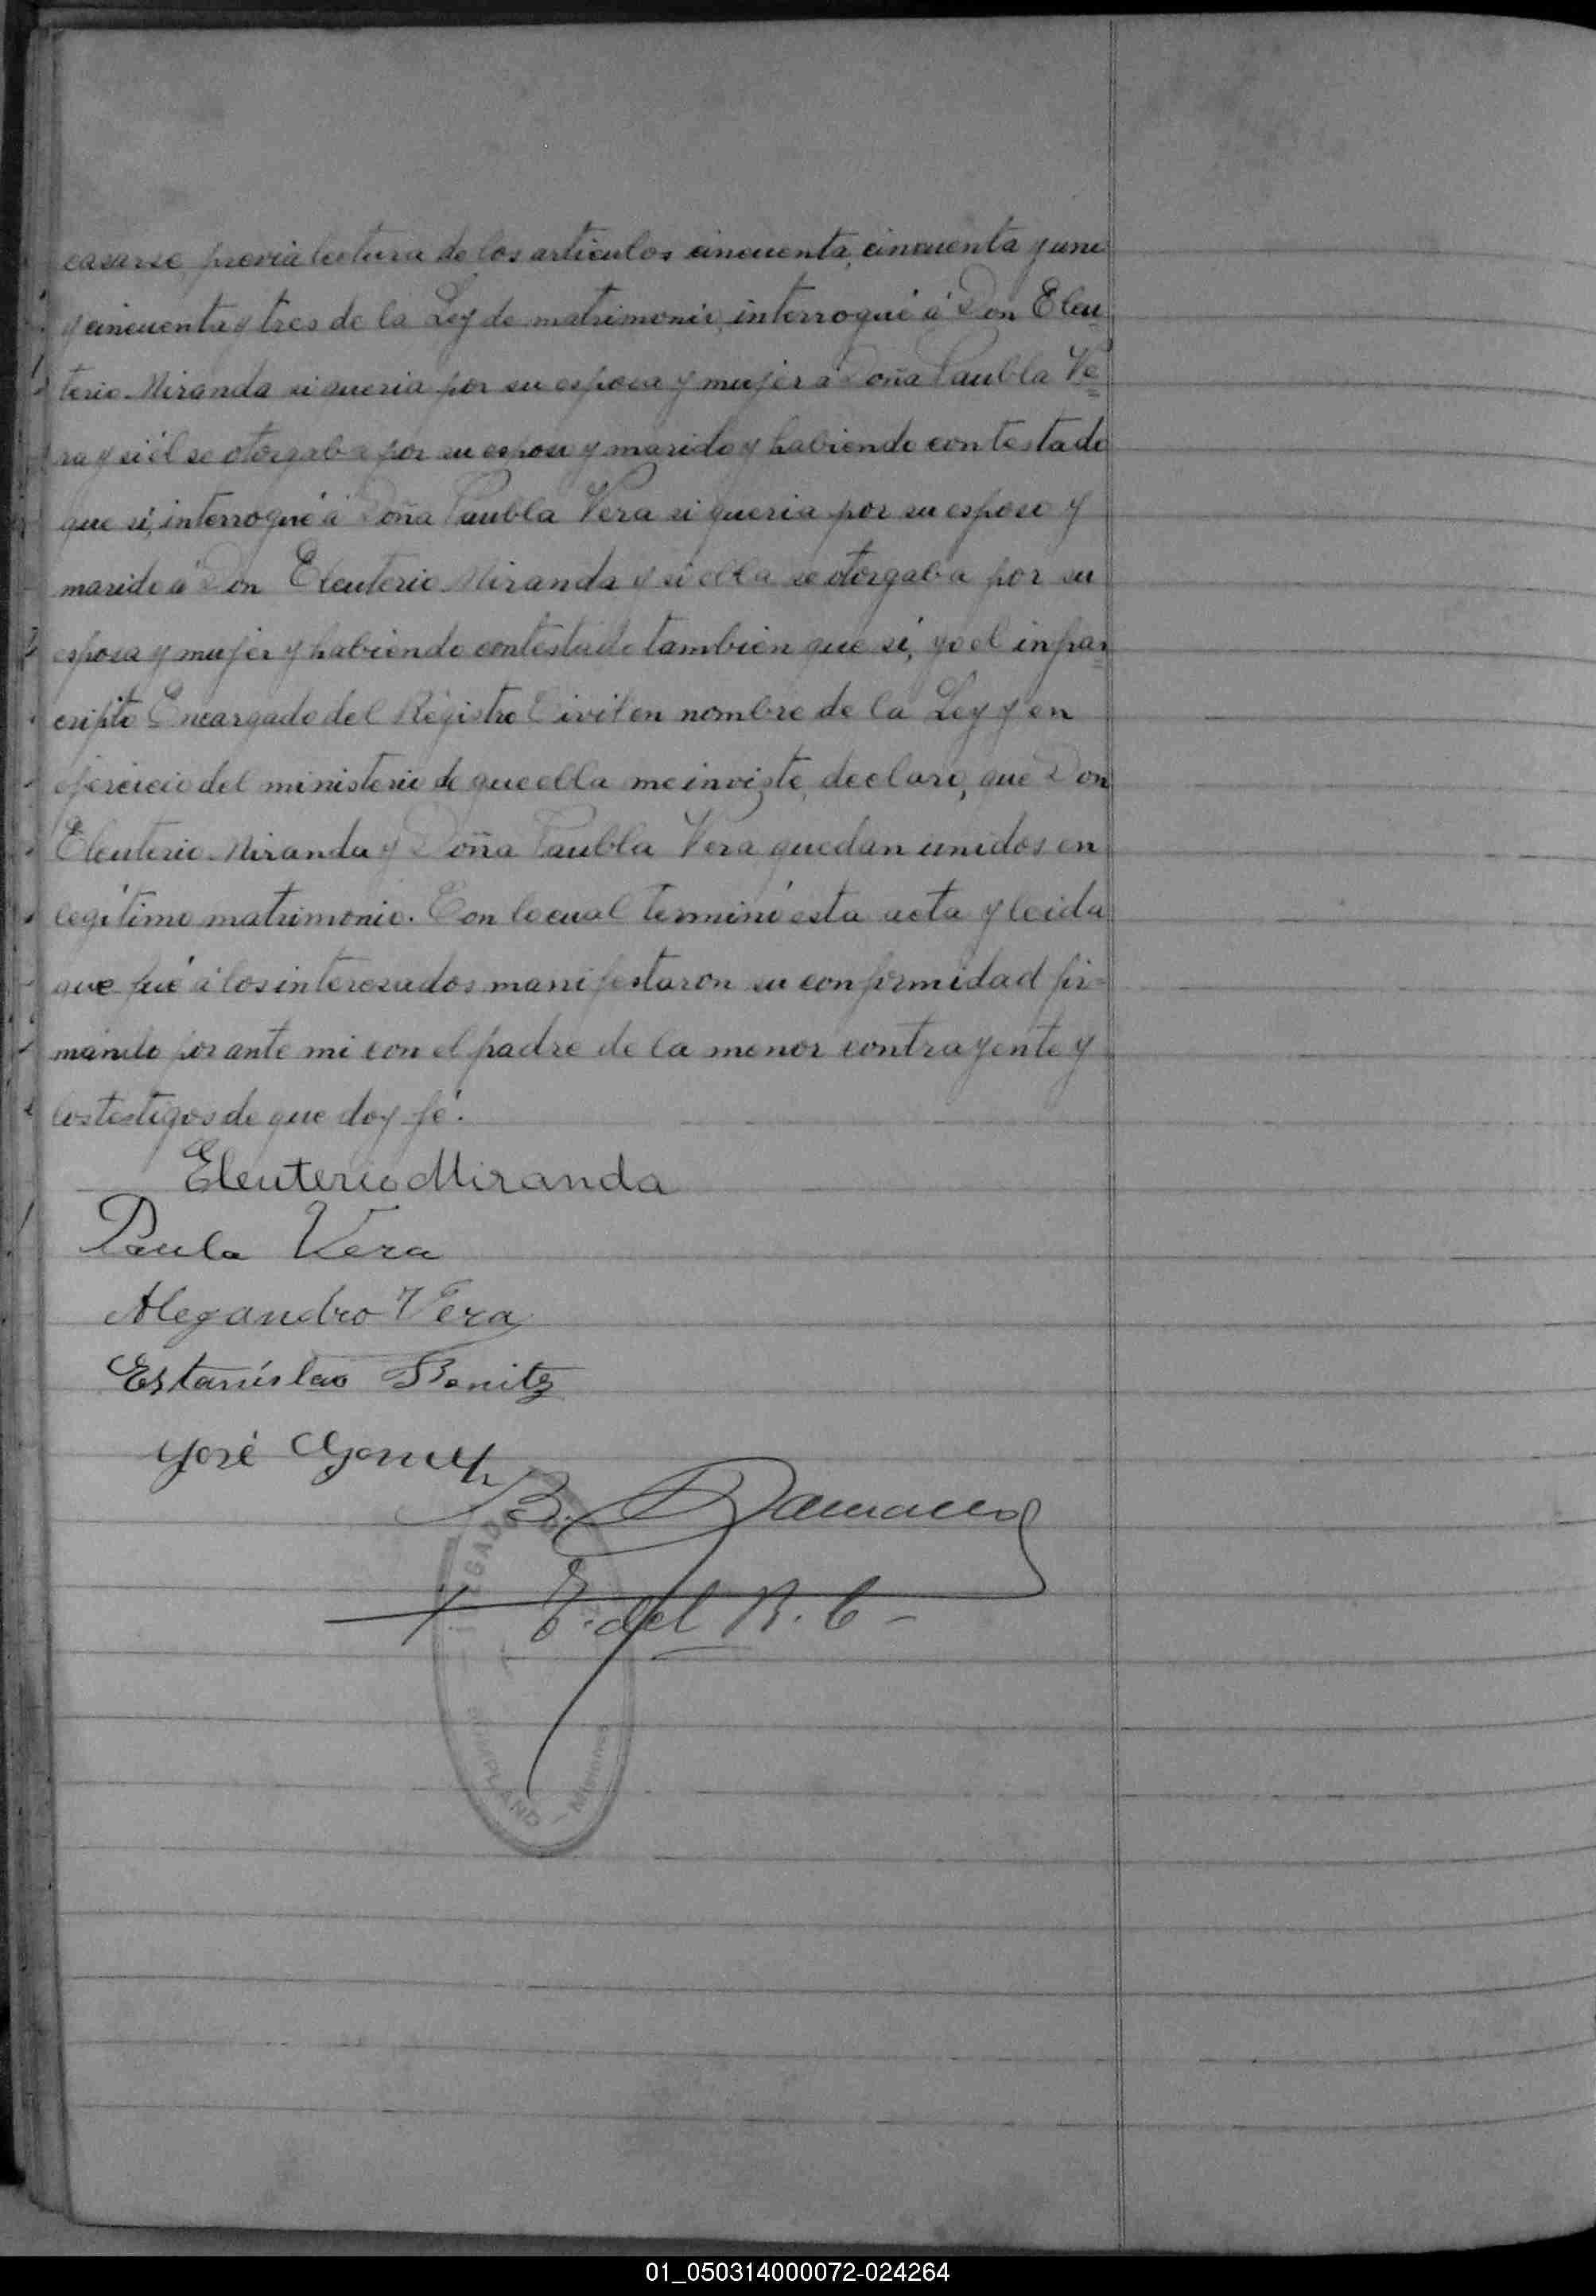 casarse, previa lectura de los articulos cincuenta, cincuenta y uno
y cincuenta y tres de la Ley de matrimonio, interrogué á Don Eleu-
terio Miranda si queria por su esposa y mujer á Doña Paubla Ve=
ra y si él se otorgaba por su esposo y marido y habiendo contestado
que sí, interrogué á Doña Paubla Vera si queria por su esposo y
marido á Don Eleuterio Miranda y si ella se otorgaba por su
esposa y mujer y habiendo contestado tambien que sí, yo el infras=
cripto Encargado del Registro Civil en nombre de la Ley y en
ejercicio del ministerio de que ella me inviste, declaro, que Don
Eleuterio Miranda y Doña Paubla Vera quedan unidos en
legítimo matrimonio. Con lo cual terminó esta acta y leida
que fué á los interesados manifestaron su conformidad fir=
mando por ante mi con el padre de la menor contrayente y
los testigos de que doy fé.
Eleuterio Miranda
Paula Vera
Alegandro Vera
Estanislao Benitz
José Gomez
B.
E. del R. C.
BOMPLAND
Misiones
01_050314000072-024264